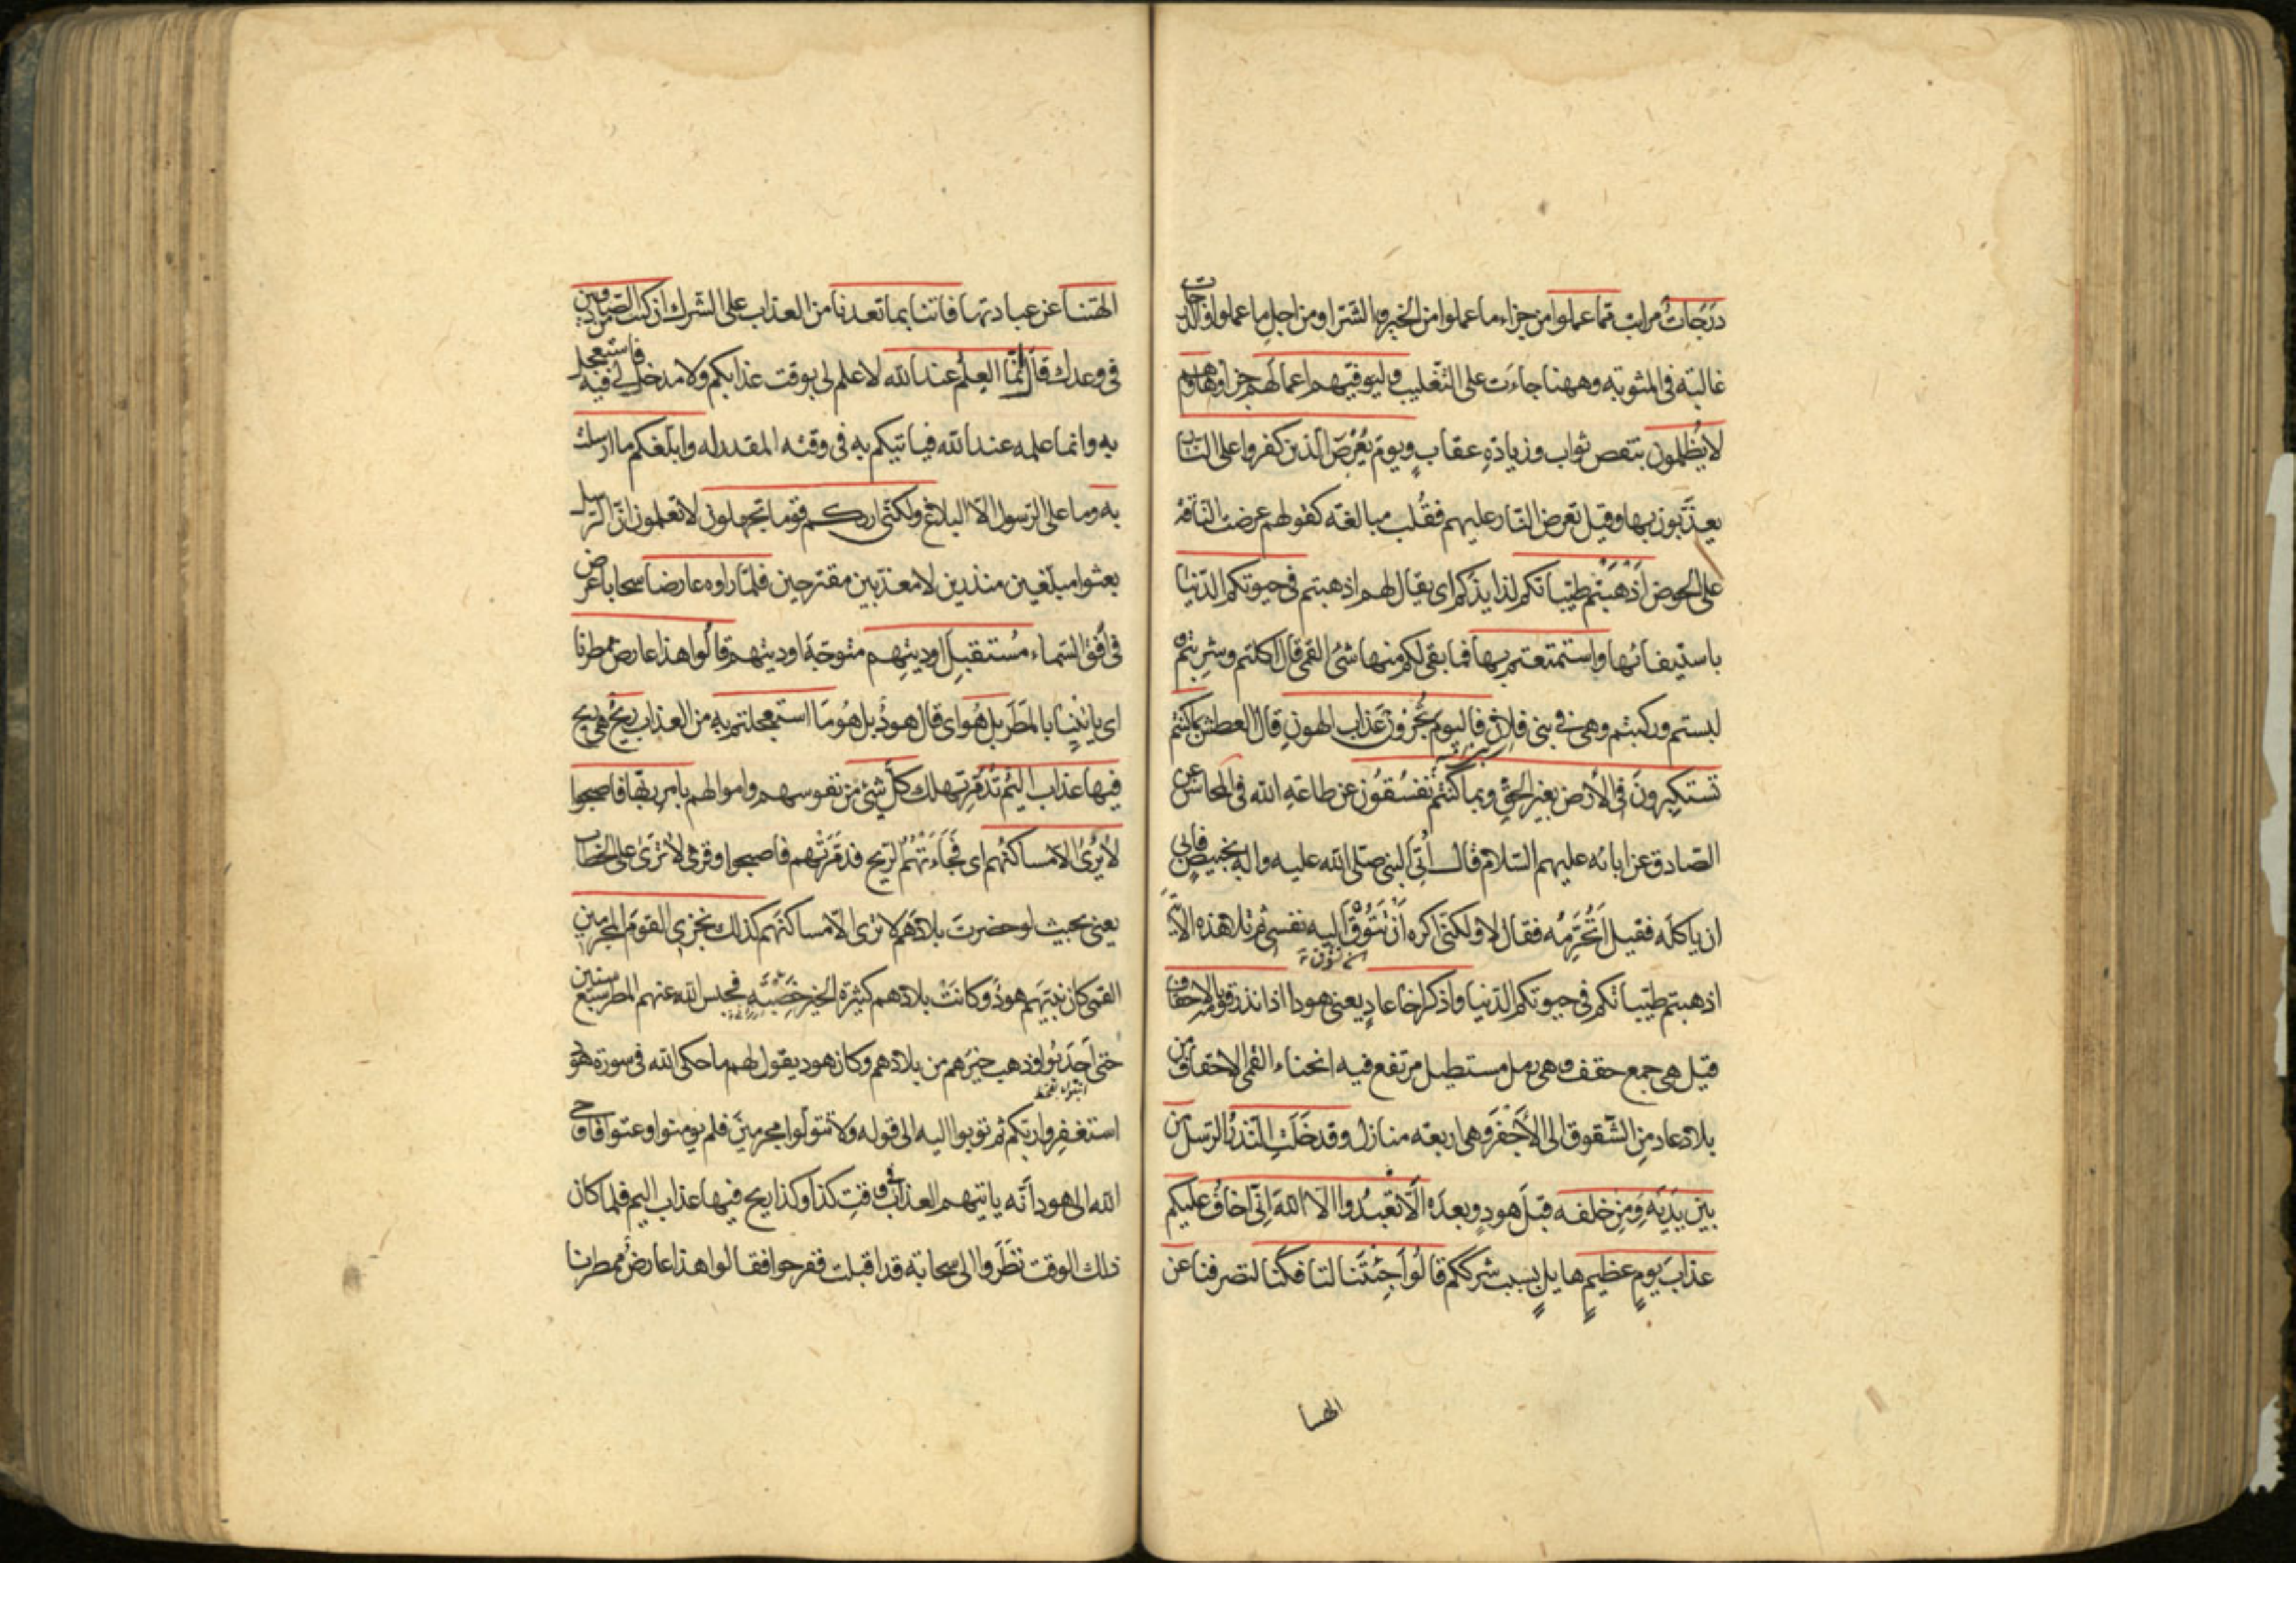 درجات مراتب مما عملوا من جزاء ما عملوا من الخير والشر او من اجل ما عملوا والدرجات
غالبة في المثوبة وههنا جاءت على التغليب وليوفيهم اعمالهم جزاوها وهم
لا يظلمون بنقص ثواب وزيادة عقاب ويوم يعرض الذين كفروا على النار
يعذبون بها وقيل تعرض النار عليهم فقلب مبالغة كقولهم عرضت الناقة
على الحوض اذهبتم طيباتكم لذايذكم اى يقال لهم اذهبتم في حيوتكم الدنيا
باستيفائها واستمتعتم بها فما بقي لكم منها شئ القمي قال اكلتم وشربتم
لبستم وركبتم وهى في بني فلان فاليوم تجزون عذاب الهون قال العطش بما كنتم
تستكبرون في الارض بغير الحق وبما كنتم تفسقون عن طاعة الله في المحاسن عن
الصادق عن ابائه عليهم السلام قال اتي النبي صلى الله عليه واله بخبيص فابى
ان ياكله فقيل اتحرمه فقال لا ولكني اكره ان تتوق اليه نفسي ثم تلا هذه الاية
اذهبتم طيباتكم في حيوتكم الدنيا واذكر اخا عاد يعني هودا اذ انذر قومه بالاحقاف
قيل هى جمع حقف وهى رمل مستطيل مرتفع فيه انحناء القمي الاحقاف من
بلاد عاد من الشقوق الى الاجفر وهى اربعة منازل وقد خلت النذر الرسل من
بين يديه ومن خلفه قبل هود وبعده الا تعبدوا الا الله اني اخاف عليكم
عذاب يوم عظيم هايل بسبب شرككم قالوا اجئتنا لتافكنا لتصرفنا عن
الهتنا
الهتنا عن عبادتها فاتنا بما تعدنا من العذاب على الشرك ان كنت من الصادقين
في وعدك قال انما العلم عند الله لا علم لي بوقت عذابكم ولا مدخل لي فيه فاستعجل
به وانما علمه عند الله فياتيكم به في وقته المقدر له وابلغكم ما ارسلت
به وما على الرسول الا البلاغ ولكني اريكم قوما تجهلون لا تعلمون ان الرسل
بعثوا مبلغين منذرين لا معذبين مقترحين فلما راوه عارضا سحابا عرض
في افق السماء مستقبل اوديتهم متوجه اوديتهم قالوا هذا عارض ممطرنا
اى ياتينا بالمطر بل هو اى قال هود بل هو ما استعجلتم به من العذاب ريح هى ريح
فيها عذاب اليم تدمر تهلك كل شئ من نفوسهم واموالهم بامر ربها فاصبحوا
لا يرى الا مساكنهم اى فجاءتهم الريح فدمرتهم فاصبحوا وقرئ لا ترى على الخطاب
يعني بحيث لو حضرت بلادهم لا ترى الا مساكنهم كذلك نجزي القوم المجرمين
القمي كان نبيهم هود وكانت بلادهم كثيرة الخير خصبة فحبس الله عنهم المطر سبع سنين
حتى اجدبوا وذهب خيرهم من بلادهم وكان هود يقول لهم ما حكى الله في سورة هود
استغفروا ربكم ثم توبوا اليه الى قوله ولا تتولوا مجرمين فلم يومنوا وعتوا فاوحى
الله الى هود انه ياتيهم العذاب في وقت كذا وكذا ريح فيها عذاب اليم فلما كان
ذلك الوقت نظروا الى سحابة قد اقبلت ففرحوا فقالوا هذا عارض ممطرنا